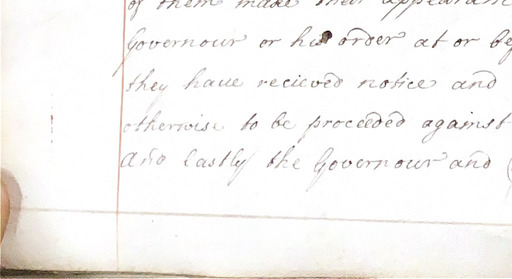 of them make their appearan
Governour or his order at or bef
they have recieved notice and
otherwise to be proceeded against
And lastly the Governour and